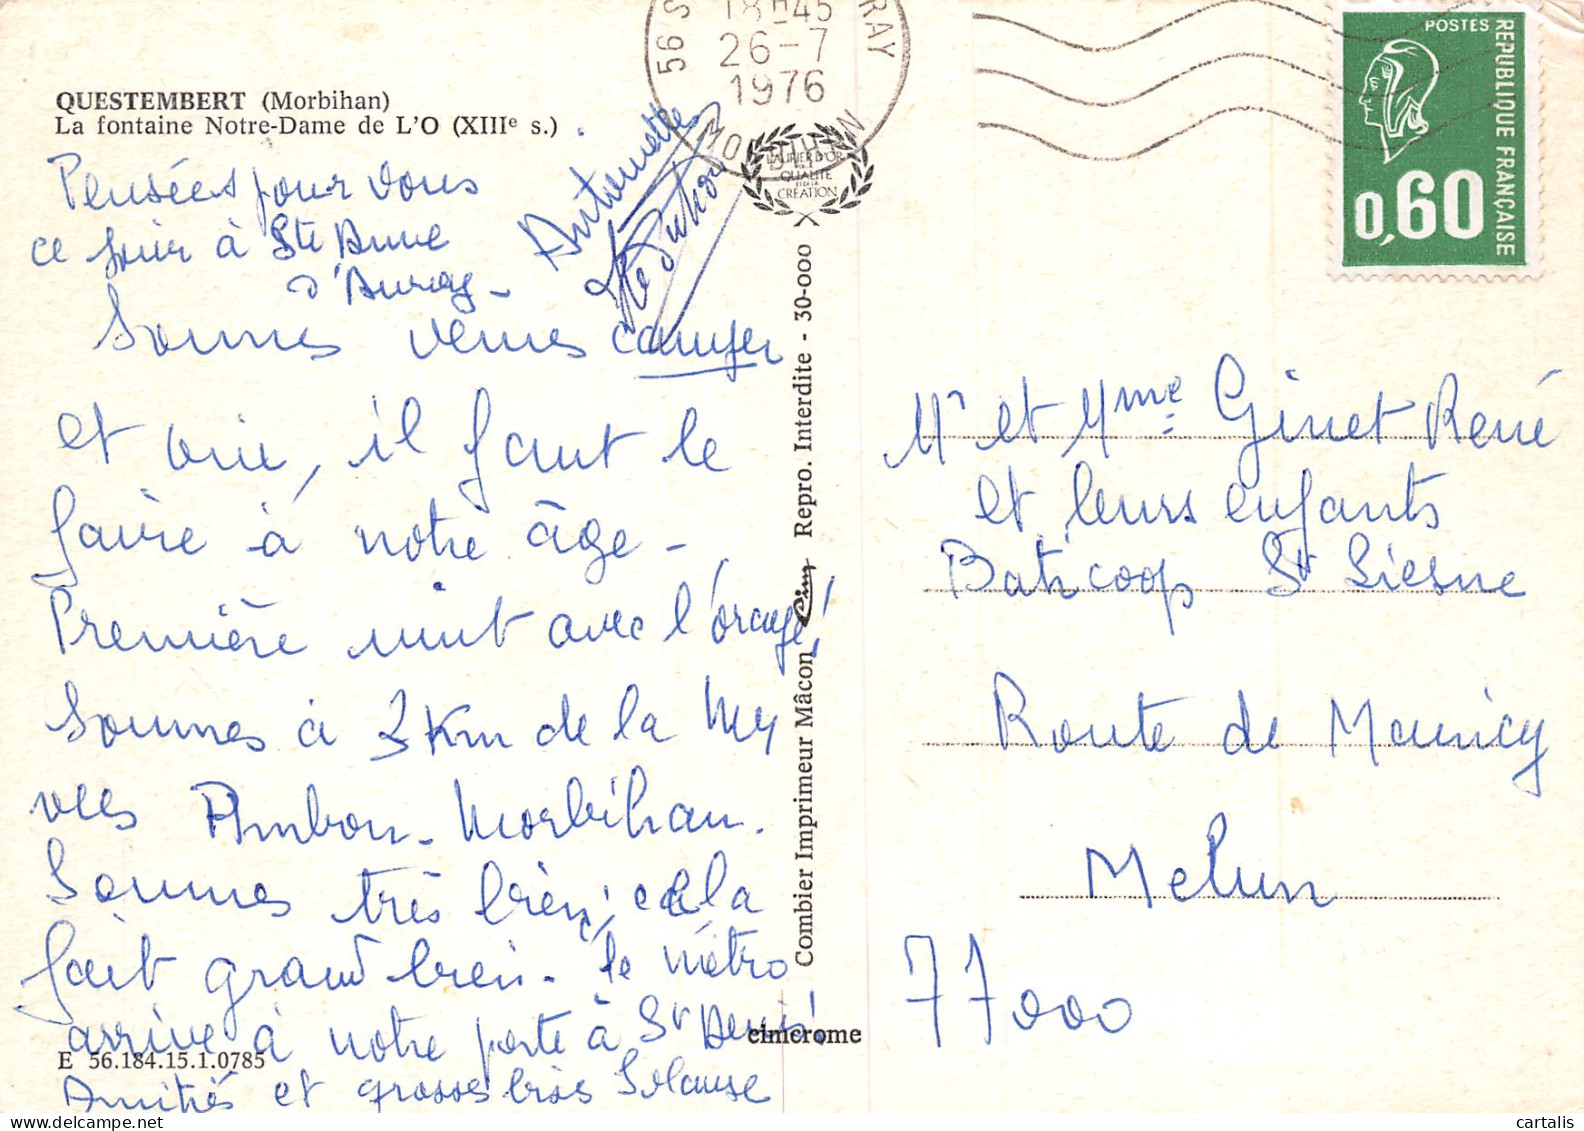 QUESTEMBERT (Morbihan)
La fontaine Notre-Dame de L'O (XIIIe s.)
Pensées pour vous
ce soir à Ste Anne
d'Auray -
Sommes venus camper
et oui, il faut le
faire à notre âge -
Première nuit avec l'orage!
Sommes à 3 Km de la
Ambon - Morbihan.
Sommes très bien, cela
fait grand bien. le métro
arrive à notre porte à St Denis!
Amitiés et grosses bises
Antoinette
E 56.184.15.1.0785
Combier Imprimeur Mâcon Cim Repro. Interdite - 30-000
cimcrome
LAURIER D'OR
QUALITÉ
CRÉATION
18H45
26-7
1976
56 S RAY
MORBIHAN
POSTES
REPUBLIQUE FRANÇAISE
0,60
Mr et Mme Ginet René
et leurs enfants
Baticoop St Liesne
Route de Maincy
Melun
77000